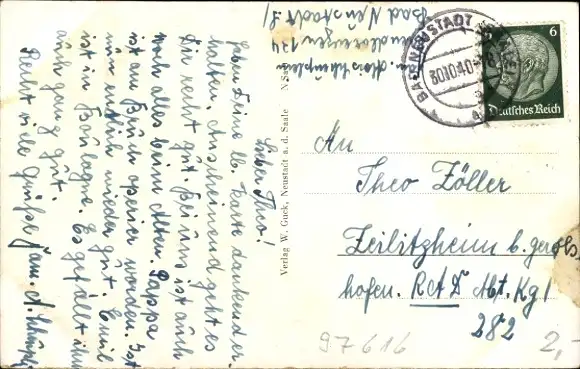 Lieber Theo!
Habe Deine lb. Karte dankend er-
halten. Anscheinend geht es
Dir recht gut. Bei uns ist auch
noch alles beim Alten. Pappa
ist am Bruch operier worden. Ist
nun endlich wieder gut. Emil
ist in Boulogne. Es gefällt ihm
auch ganz gut.
Recht viele Grüße Fam. A.
Bad Neustadt
Verlag W. Guck, Neustadt a. d. Saale
BAD NEUSTADT
30.10.40
6
Deutsches Reich
An
Theo Zöller
Zeilitzheim b. gerolz-
hofen. RAD Abt. Kg 1
282
97616
2,-